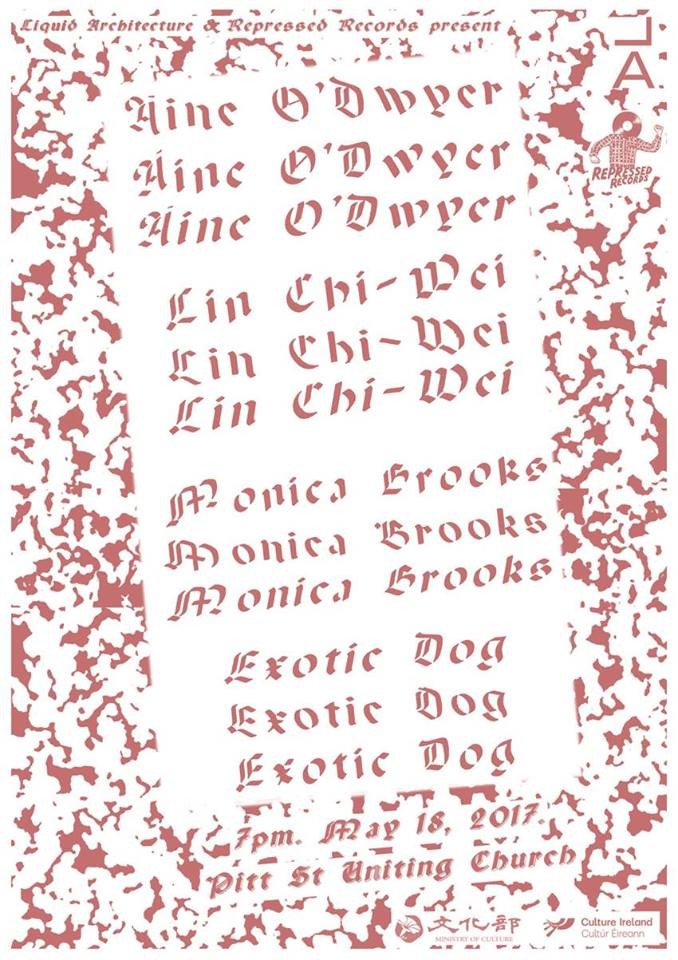 Liquid Architecture & Repressed Records present
LA
REPRESSED
RECORDS
Áine O'Dwyer
Áine O'Dwyer
Áine O'Dwyer
Lin Chi-Wei
Lin Chi-Wei
Lin Chi-Wei
Monica Brooks
Monica Brooks
Monica Brooks
Exotic Dog
Exotic Dog
Exotic Dog
7pm. May 18, 2017.
Pitt St Uniting Church
文化部
MINISTRY OF CULTURE
Culture Ireland
Cultúr Éireann